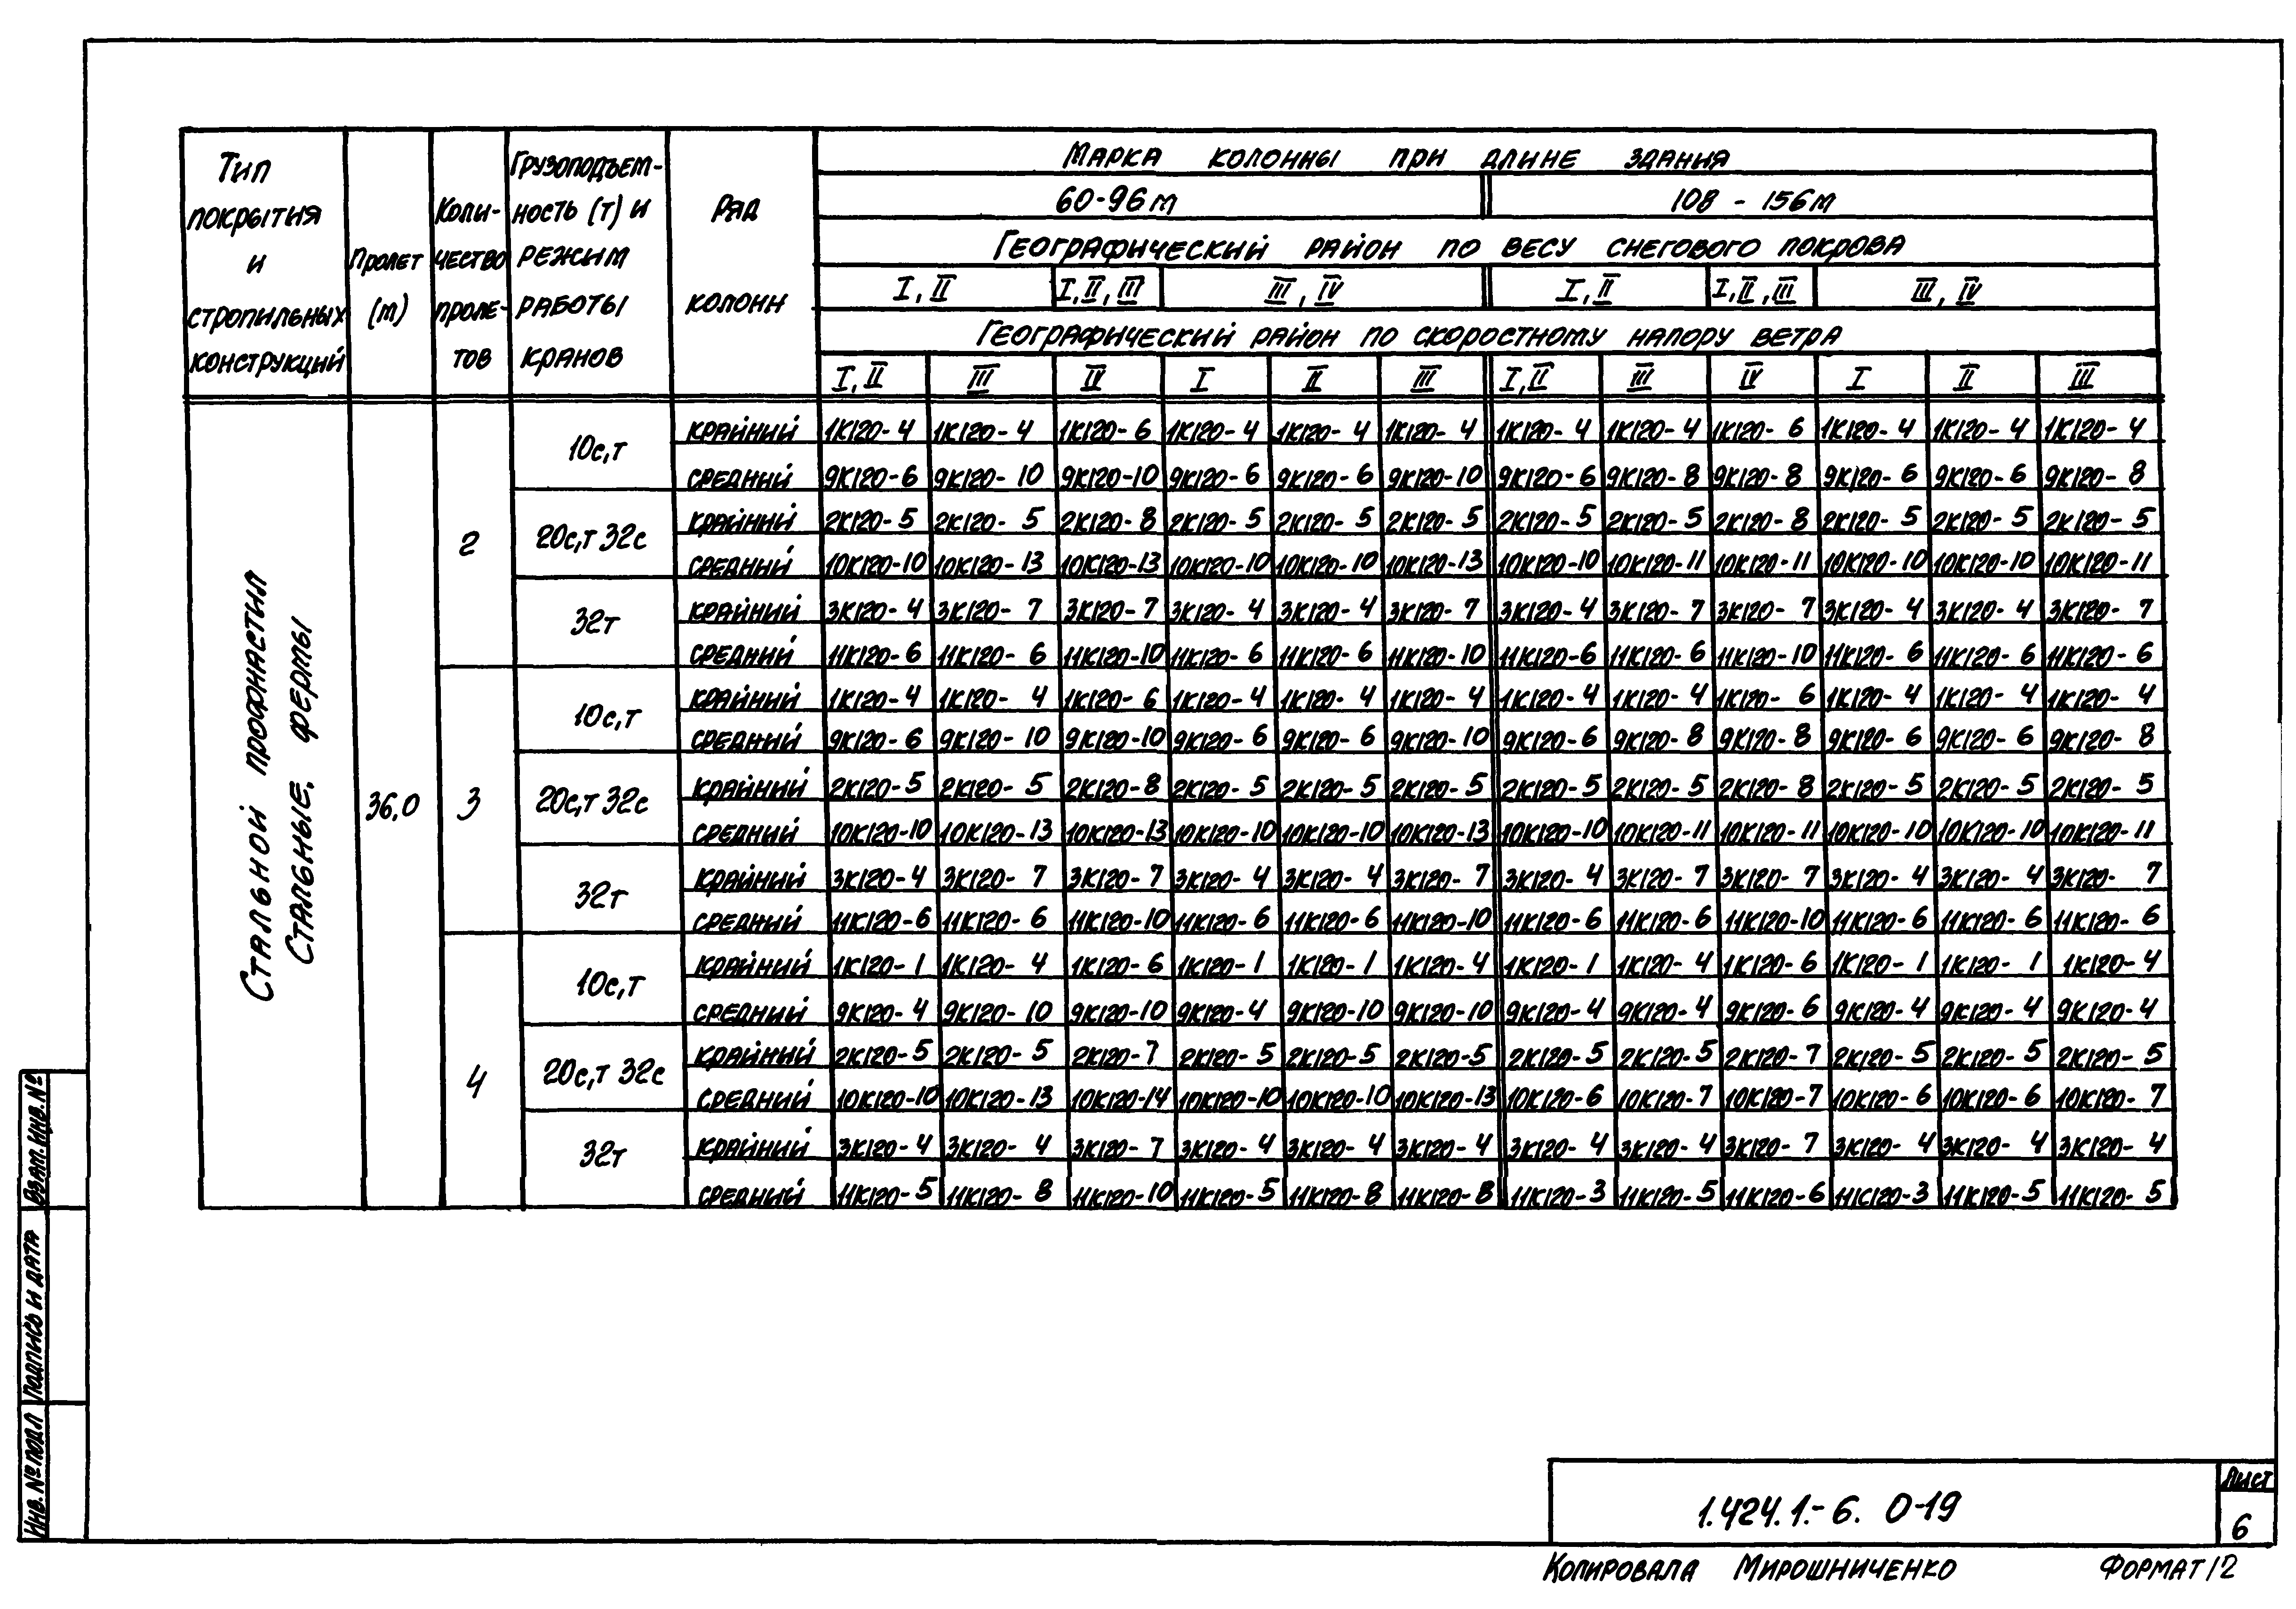 Тип покрытия и стропильных конструкций | Пролет (м) | Количество пролетов | Грузоподъемность (т) и режим работы кранов | Ряд колонн | Марка колонны при длине здания
60-96м | 108 - 156м
Географический район по весу снегового покрова
I, II | I, II, III | III, IV | I, II | I, II, III | III, IV
Географический район по скоростному напору ветра
I, II | III | IV | I | II | III | I, II | III | IV | I | II | III
Стальной профнастил
Стальные фермы
36,0
2
10с,т
крайний 1К120-4 1К120-4 1К120-6 1К120-4 1К120-4 1К120-4 1К120-4 1К120-4 1К120-6 1К120-4 1К120-4 1К120-4
средний 9К120-6 9К120-10 9К120-10 9К120-6 9К120-6 9К120-10 9К120-6 9К120-8 9К120-8 9К120-6 9К120-6 9К120-8
20с,т 32с
крайний 2К120-5 2К120-5 2К120-8 2К120-5 2К120-5 2К120-5 2К120-5 2К120-5 2К120-8 2К120-5 2К120-5 2К120-5
средний 10К120-10 10К120-13 10К120-13 10К120-10 10К120-10 10К120-13 10К120-10 10К120-11 10К120-11 10К120-10 10К120-10 10К120-11
32т
крайний 3К120-4 3К120-7 3К120-7 3К120-4 3К120-4 3К120-7 3К120-4 3К120-7 3К120-7 3К120-4 3К120-4 3К120-7
средний 11К120-6 11К120-6 11К120-10 11К120-6 11К120-6 11К120-10 11К120-6 11К120-6 11К120-10 11К120-6 11К120-6 11К120-6
3
10с,т
крайний 1К120-4 1К120-4 1К120-6 1К120-4 1К120-4 1К120-4 1К120-4 1К120-4 1К120-6 1К120-4 1К120-4 1К120-4
средний 9К120-6 9К120-10 9К120-10 9К120-6 9К120-6 9К120-10 9К120-6 9К120-8 9К120-8 9К120-6 9К120-6 9К120-8
20с,т 32с
крайний 2К120-5 2К120-5 2К120-8 2К120-5 2К120-5 2К120-5 2К120-5 2К120-5 2К120-8 2К120-5 2К120-5 2К120-5
средний 10К120-10 10К120-13 10К120-13 10К120-10 10К120-10 10К120-13 10К120-10 10К120-11 10К120-11 10К120-10 10К120-10 10К120-11
32т
крайний 3К120-4 3К120-7 3К120-7 3К120-4 3К120-4 3К120-7 3К120-4 3К120-7 3К120-7 3К120-4 3К120-4 3К120-7
средний 11К120-6 11К120-6 11К120-10 11К120-6 11К120-6 11К120-10 11К120-6 11К120-6 11К120-10 11К120-6 11К120-6 11К120-6
4
10с,т
крайний 1К120-1 1К120-4 1К120-6 1К120-1 1К120-1 1К120-4 1К120-1 1К120-4 1К120-6 1К120-1 1К120-1 1К120-4
средний 9К120-4 9К120-10 9К120-10 9К120-4 9К120-10 9К120-10 9К120-4 9К120-4 9К120-6 9К120-4 9К120-4 9К120-4
20с,т 32с
крайний 2К120-5 2К120-5 2К120-7 2К120-5 2К120-5 2К120-5 2К120-5 2К120-5 2К120-7 2К120-5 2К120-5 2К120-5
средний 10К120-10 10К120-13 10К120-14 10К120-10 10К120-10 10К120-13 10К120-6 10К120-7 10К120-7 10К120-6 10К120-6 10К120-7
32т
крайний 3К120-4 3К120-4 3К120-7 3К120-4 3К120-4 3К120-4 3К120-4 3К120-4 3К120-7 3К120-4 3К120-4 3К120-4
средний 11К120-5 11К120-8 11К120-10 11К120-5 11К120-8 11К120-8 11К120-3 11К120-5 11К120-6 11К120-3 11К120-5 11К120-5
Взам. инв. №
Подпись и дата
Инв. № подл
1.424.1.-6. 0-19
Лист
6
Копировала Мирошниченко Формат 12